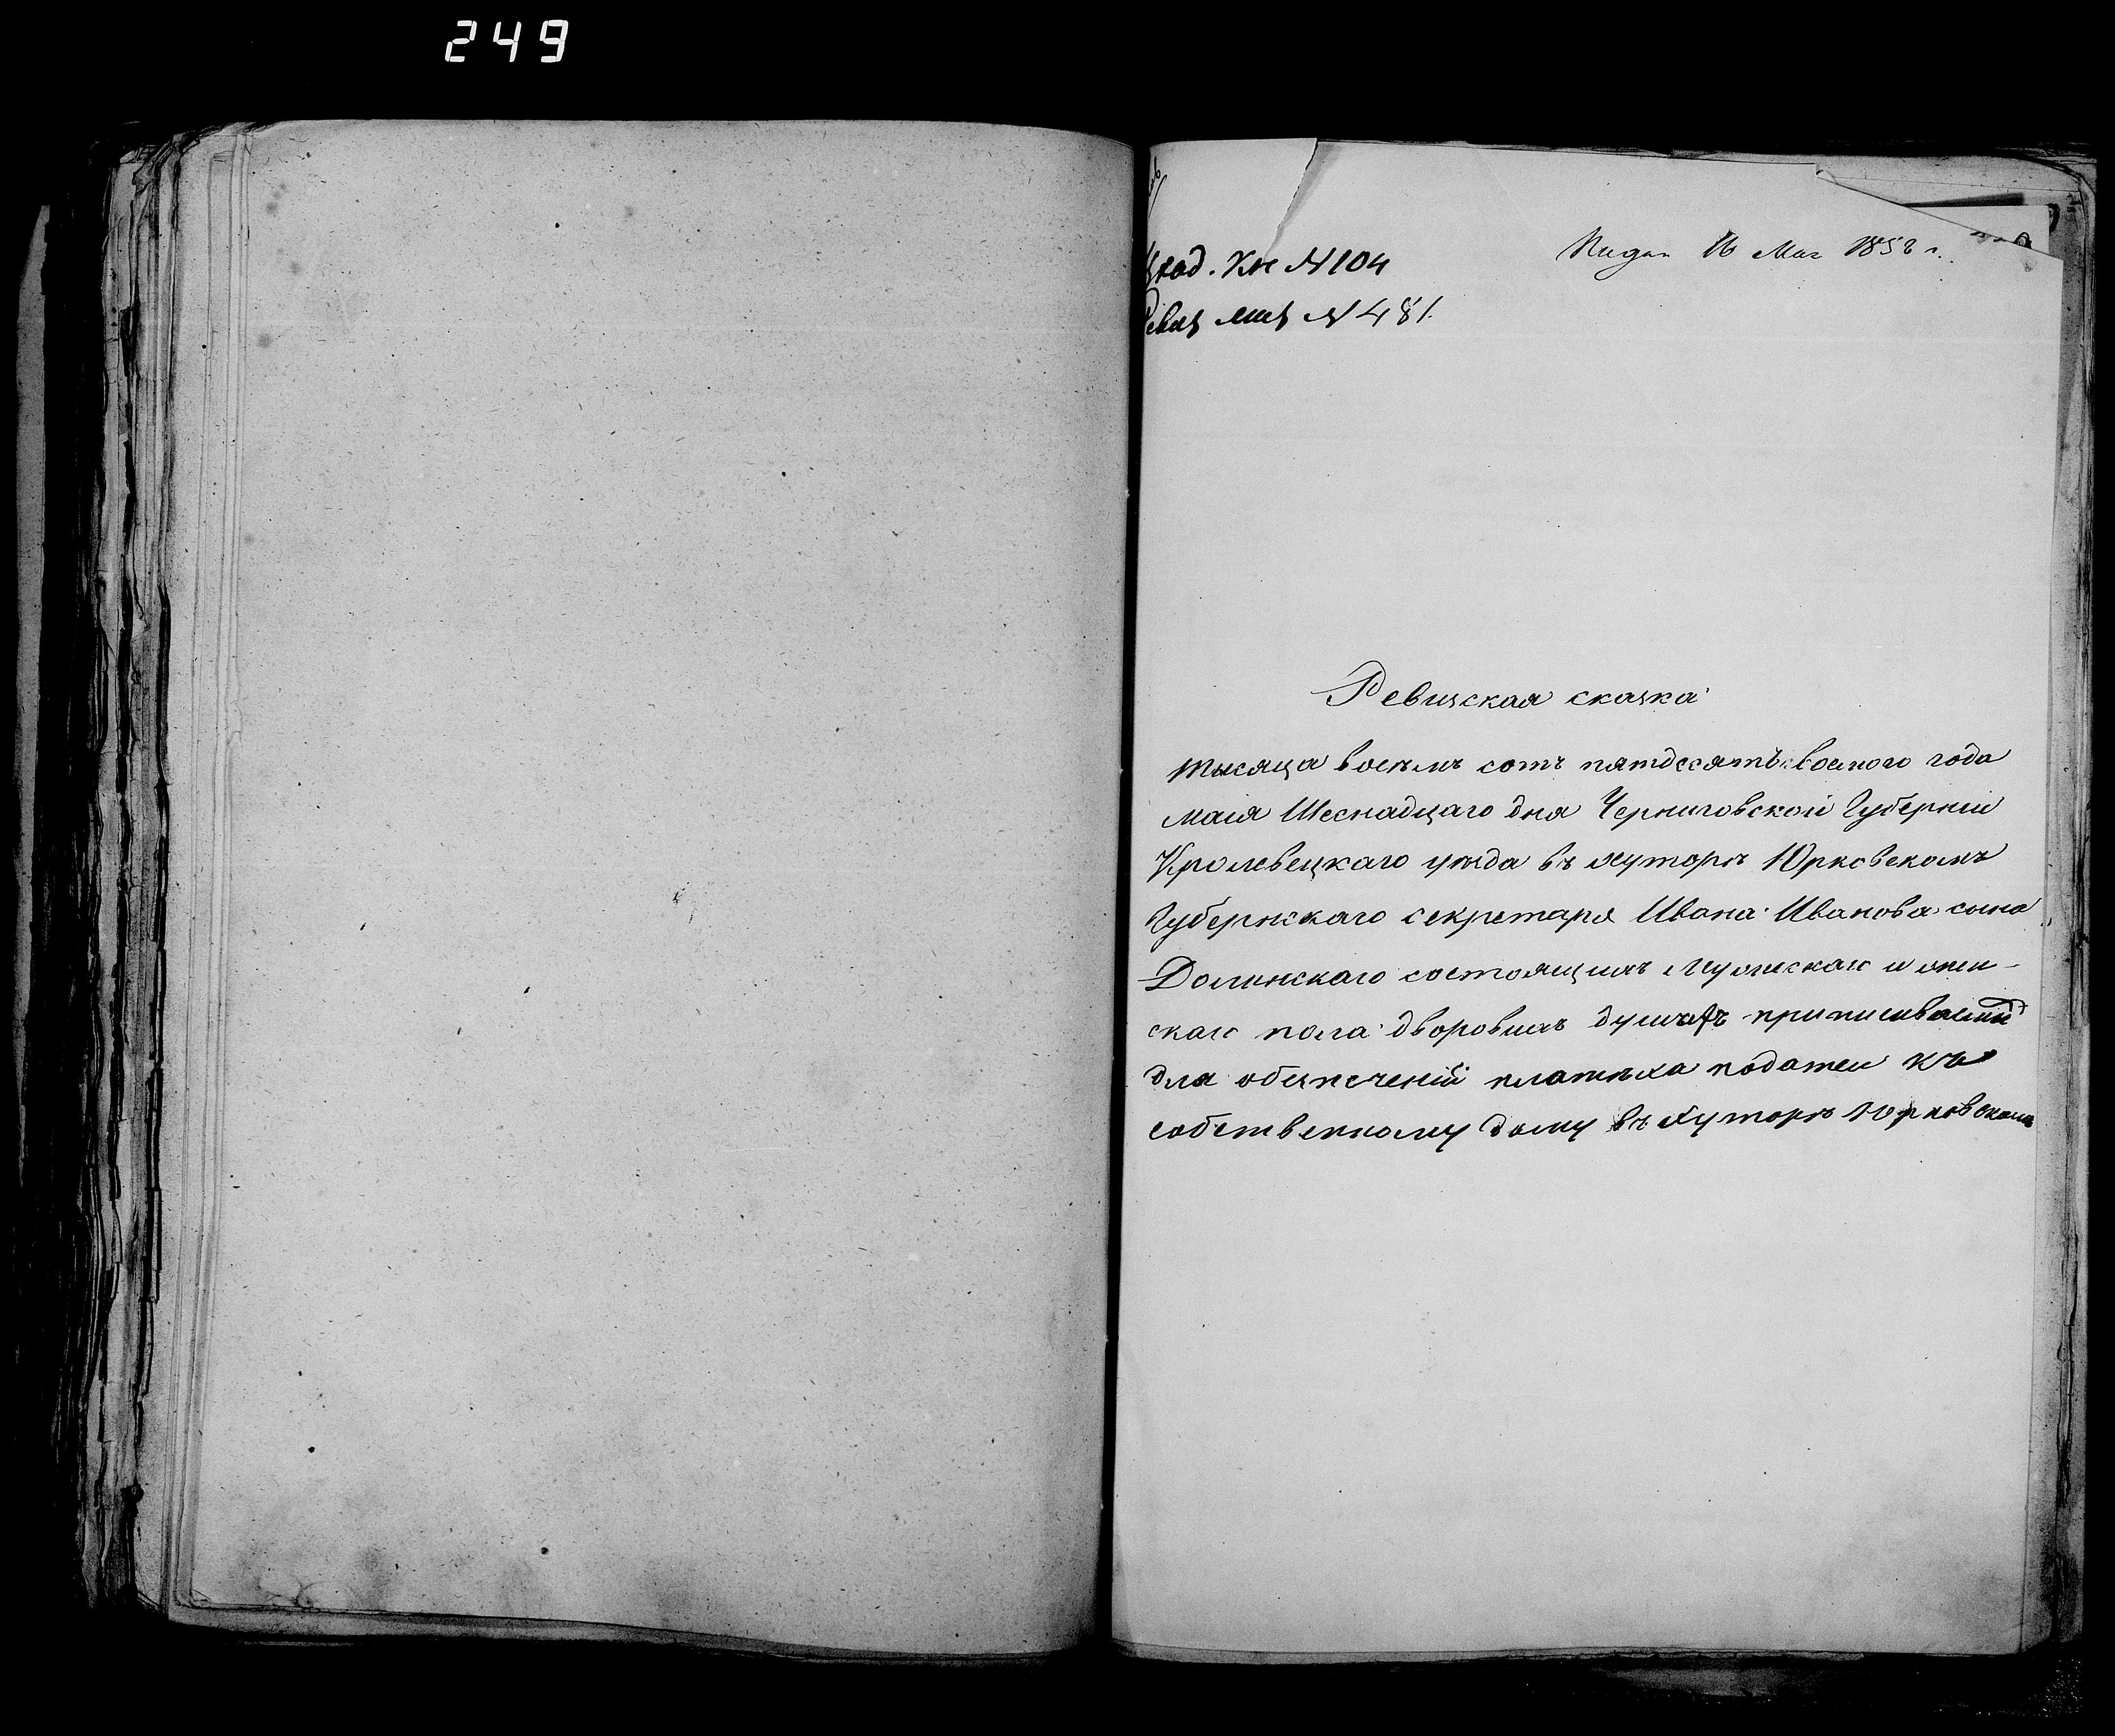 249
Вход. Кн № 104
Подан 16 Мая 1858 г.
№ 481.
Ревизская сказка
тысяца восемъ сотъ пятдесятъ восмого года
маія Шеснадцаго дня Черниговской Губерніи
Кролевецкаго уѣзда въ хуторѣ Юрковскомъ
Губернскаго секретаря Ивана Иванова сына
Долинскаго состоящихъ Мужескаго и жен-
скаго пола дворовыхъ душахъ приписываемый
для обезпеченій платежа податей къ
собственному дому въ Хуторѣ Юрковскомъ